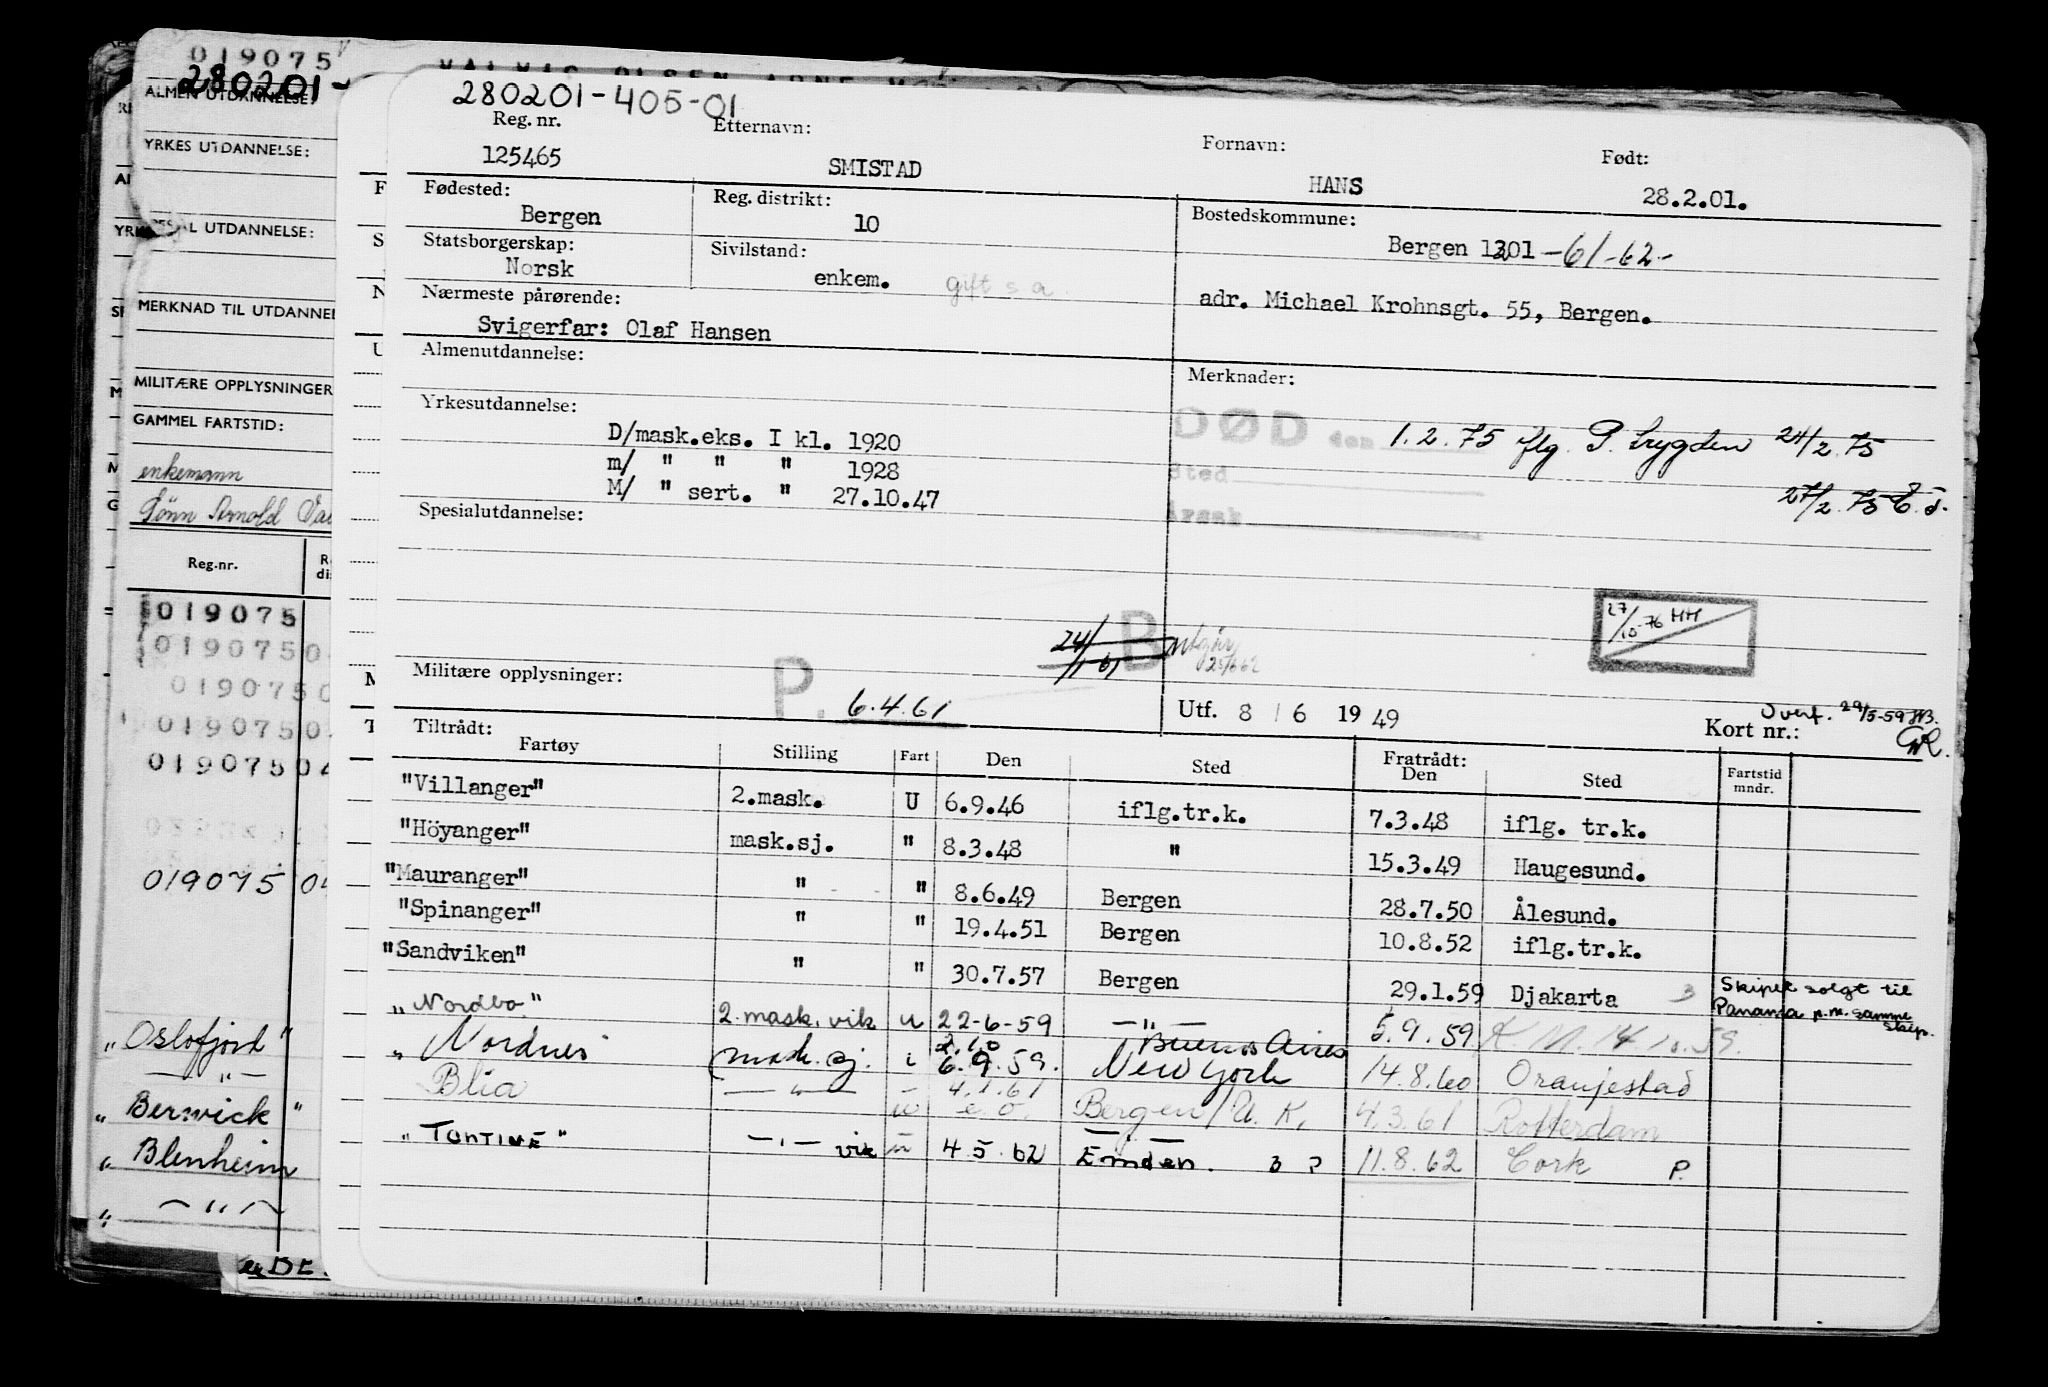 019075
280201-
ALMEN UTDANNELSE:
YRKES UTDANNELSE:
UTDANNELSE:
MERKNAD TIL UTDANNEL
MILITÆRE OPPLYSNINGER
GAMMEL FARTSTID:
enkemann
Sønn Arnold
Reg.nr.
019075
019075 0
019075 0
019075 0
019075 04
019075 04
"Oslofjord"
— " —
"Berwick"
"Blenheim
" — " —
280201-405-01
Reg. nr. Etternavn: Fornavn: Født:
125465 SMISTAD HANS 28.2.01.
Fødested: Reg. distrikt: Bostedskommune:
Bergen 10 Bergen 1301 -61-62-
Statsborgerskap: Sivilstand:
Norsk enkem. gift s a.
Nærmeste pårørende: adr. Michael Krohnsgt. 55, Bergen.
Svigerfar: Olaf Hansen
Almenutdannelse: Merknader:
Yrkesutdannelse: DØD den 1.2.75 flg. P. trygden 24/2.75
D/mask.eks. I kl. 1920 Sted
m/ " " " 1928 Årsak 27/2.75
M/ " sert. " 27.10.47
Spesialutdannelse:
27/10-76 HH
24/1-61 B utgår 25/6 62
Militære opplysninger: P. 6.4.61 Utf. 8 / 6 1949 Kort nr.: Overf. 29/5-59
Tiltrådt: Fratrådt:
Fartøy Stilling Fart Den Sted Den Sted Fartstid mndr.
"Villanger" 2.mask. U 6.9.46 iflg.tr.k. 7.3.48 iflg. tr.k.
"Höyanger" mask.sj. " 8.3.48 " 15.3.49 Haugesund.
"Mauranger" " " 8.6.49 Bergen 28.7.50 Ålesund.
"Spinanger" " " 19.4.51 Bergen 10.8.52 iflg.tr.k.
"Sandviken" " " 30.7.57 Bergen 29.1.59 Djakarta 3 Skipet solgt til Panama p.m. samme skip.
"Nordbo" 2.mask. vik u 22-6-59 — " — 5.9.59 K.M. 14 10.59.
" Nordnes mask.sj. u 2.10 6.9.59. Buenos Aires New York 14.8.60 Oranjestad
Blia — " — u 4.1.61 e.o. Bergen/U.K. 4.3.61 Rotterdam
"TONTINE" — " — vik u 4.5.62 Emden. 3 P 11.8.62 Cork P.